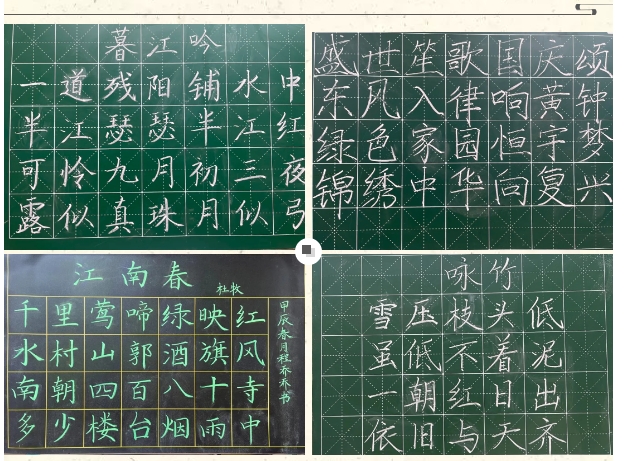 暮江吟
一道残阳铺水中
半江瑟瑟半江红
可怜九月初三夜
露似真珠月似弓
盛世笙歌国庆颂
东风入律响黄钟
绿色家园恒宇梦
锦绣中华向复兴
江南春
杜牧
千里莺啼绿映红
水村山郭酒旗风
南朝四百八十寺
多少楼台烟雨中
甲辰春月程
书
咏竹
雪压枝头低
虽低不着泥
一朝红日出
依旧与天齐